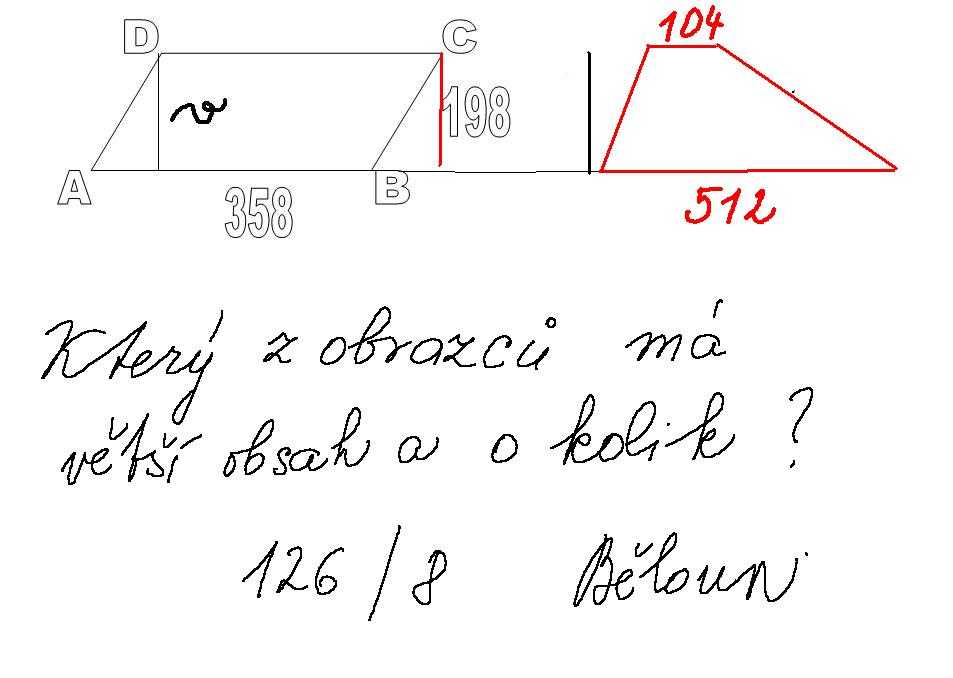 104
D C
v 198
A B
358 512
Který z obrazců má
větší obsah a o kolik?
126/8 Běloun